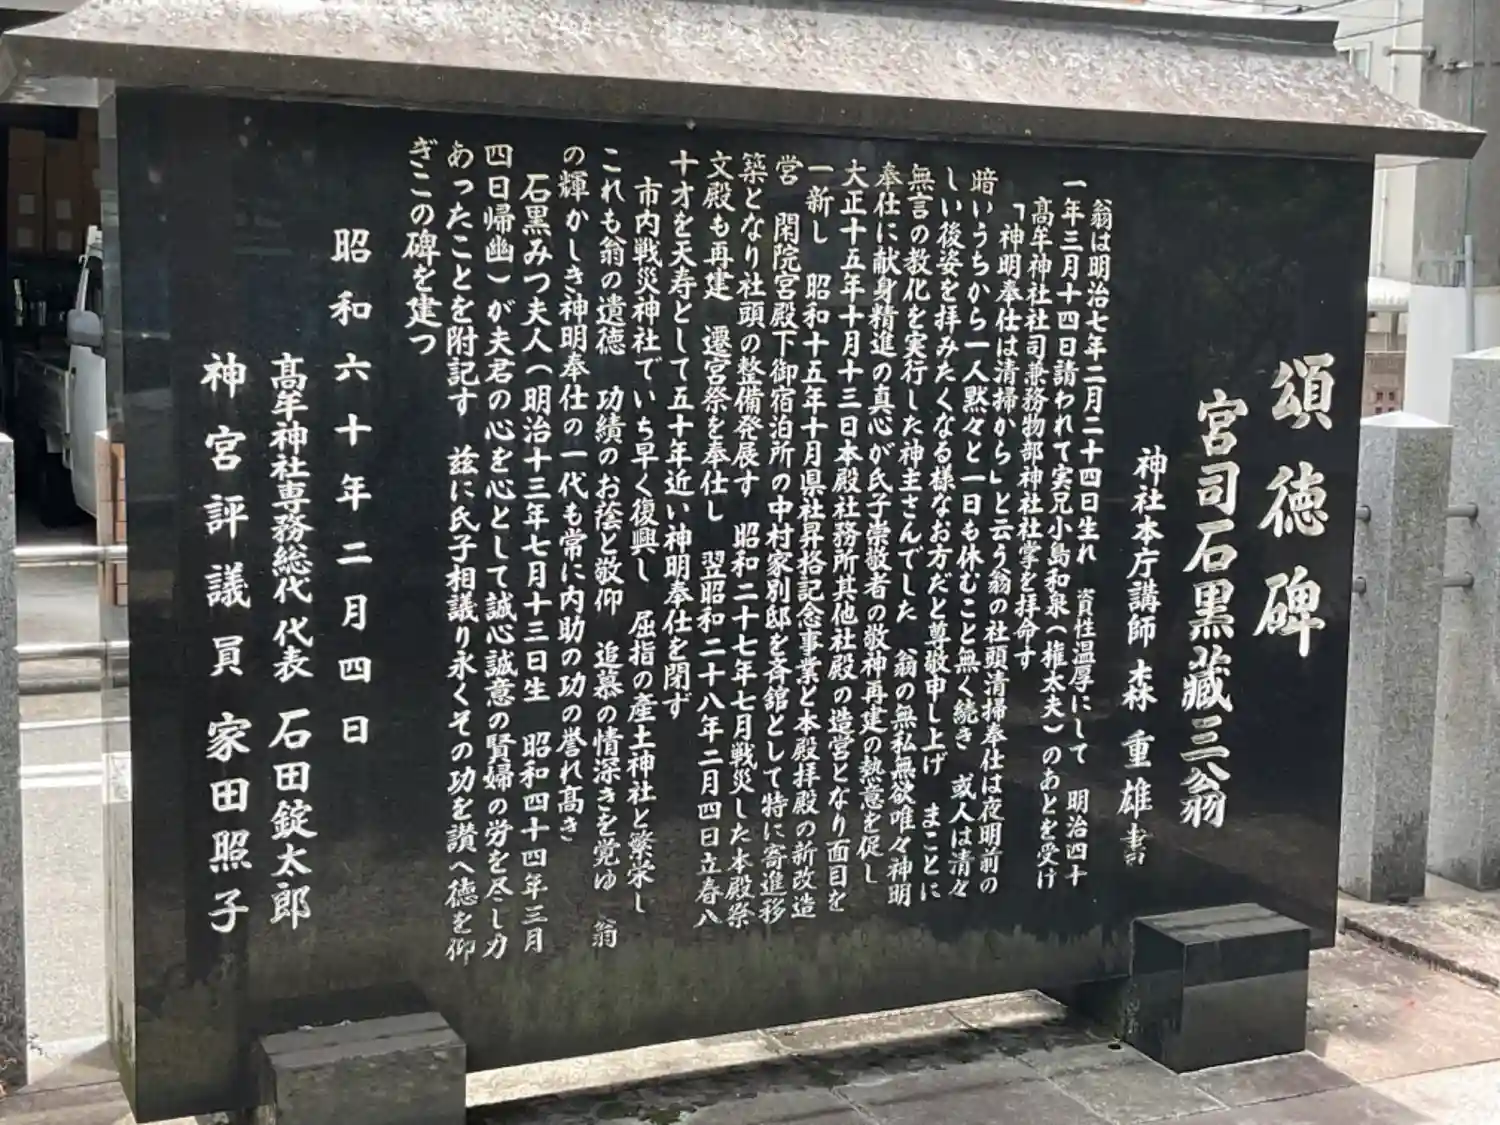 頌徳碑
宮司石黒藏三翁
神社本庁講師 森重雄書
翁は明治七年二月二十四日生れ 資性温厚にして 明治四十
一年三月十四日請われて実兄小島和泉(権太夫)のあとを受け
髙牟神社社司兼務物部神社社掌を拝命す
「神明奉仕は清掃から」と云う翁の社頭清掃奉仕は夜明前の
暗いうちから一人黙々と一日も休むこと無く続き 或人は清々
しい後姿を拝みたくなる様なお方だと尊敬申し上げ まことに
無言の教化を実行した神主さんでした 翁の無私無欲唯々神明
奉仕に献身精進の真心が氏子崇敬者の敬神再建の熱意を促し
大正十五年十月十三日本殿社務所其他社殿の造営となり面目を
一新し 昭和十五年十月県社昇格記念事業と本殿拝殿の新改造
営 閑院宮殿下御宿泊所の中村家別邸を斉舘として特に寄進移
築となり社頭の整備発展す 昭和二十七年七月戦災した本殿祭
文殿も再建 遷宮祭を奉仕し 翌昭和二十八年二月四日立春八
十才を天寿として五十年近い神明奉仕を閉ず
市内戦災神社でいち早く復興し 屈指の産土神社と繁栄し
これも翁の遺徳 功績のお蔭と敬仰 追慕の情深きを覚ゆ 翁
の輝かしき神明奉仕の一代も常に内助の功の誉れ髙き
石黒みつ夫人(明治十三年七月十三日生 昭和四十四年三月
四日帰幽)が夫君の心を心として誠心誠意の賢婦の労を尽し力
あったことを附記す 玆に氏子相議り永くその功を讃へ徳を仰
ぎこの碑を建つ
昭和六十年二月四日
髙牟神社専務総代代表 石田錠太郎
神宮評議員 家田照子